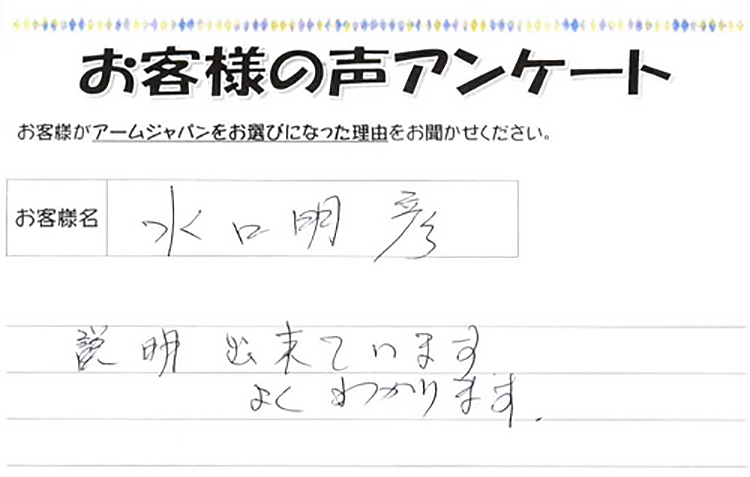 お客様の声アンケート
お客様がアームジャパンをお選びになった理由をお聞かせください。
お客様名 水口明彦
説明出来ています
よくわかります.